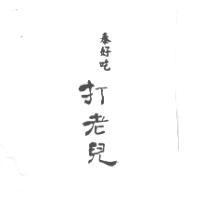 泰好吃
打老兒